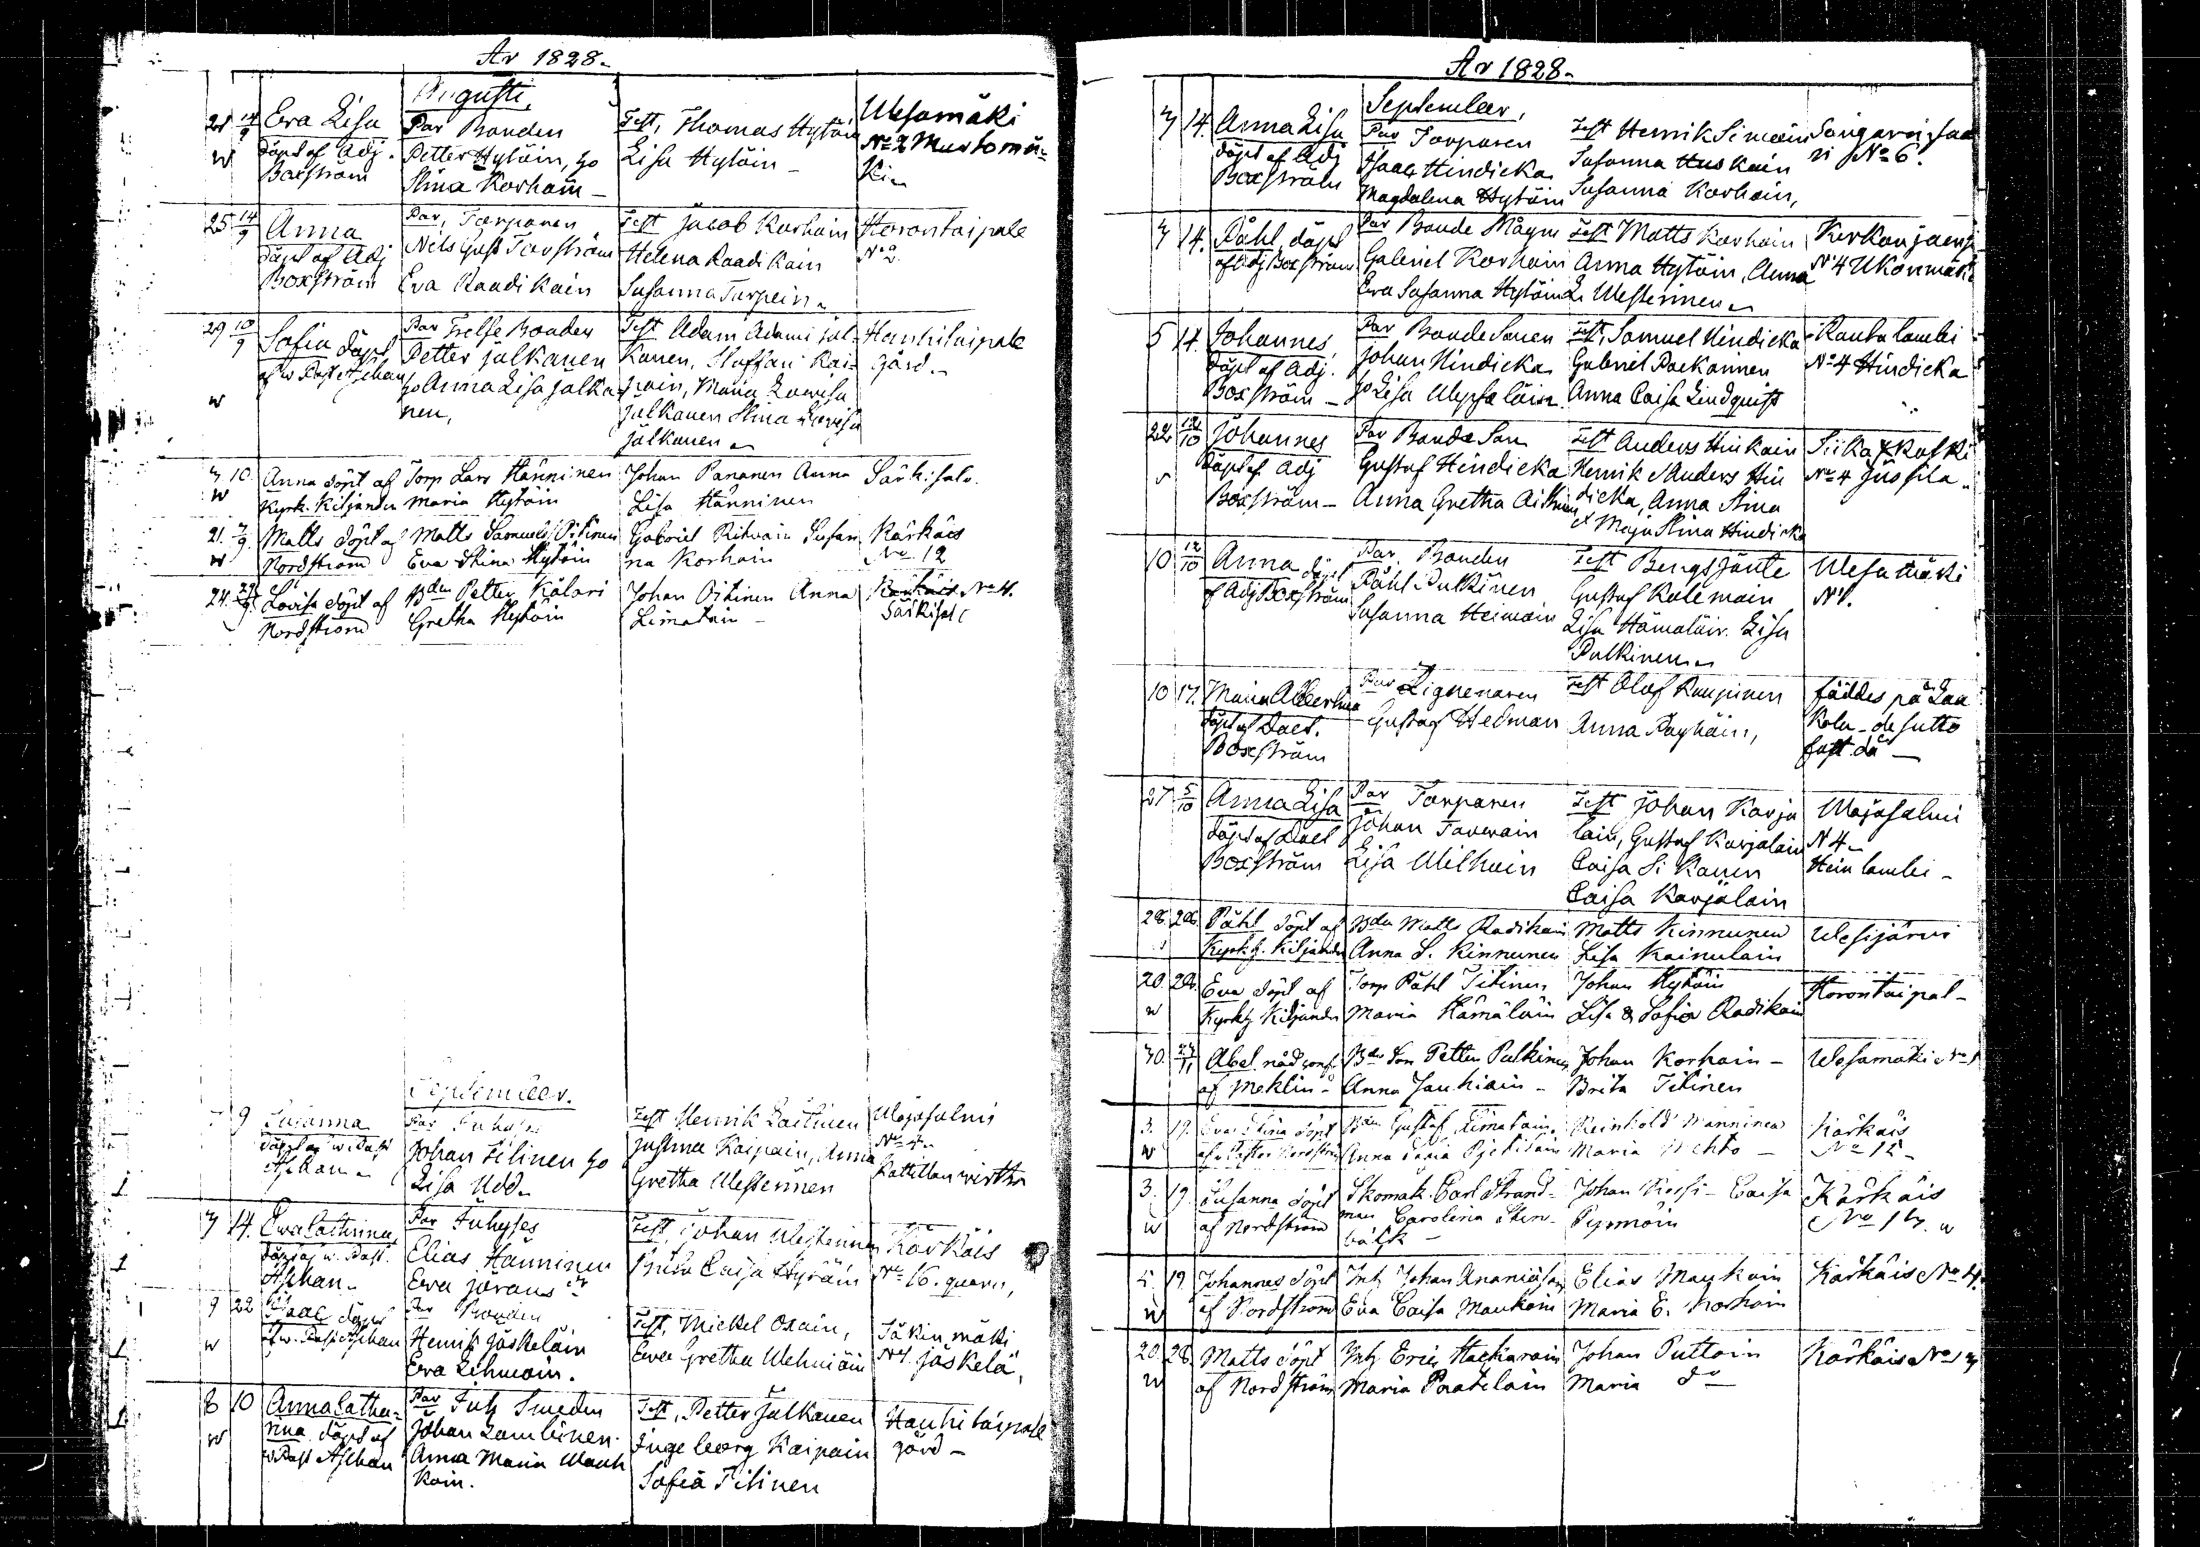 År 1828.
Augusti,
21 14/9 Eva Lisa
döpt af Adj.
Boxström
Par Bonden
Petter Hytöin, ho
Stina Korhoin
Test, Thomas Hytöin
Lisa Hytöin
Wesamäki
No 2 Mustomä-
ki
25 14/9 Anna
döpt af Adj
Boxström
Par, Torparen
Nils Gust Torström
Eva Raadikain
Test Jacob Korhoin
Helena Raadikain
Susanna Turpein
Horontaipale
No 2
29 10/9 Sofia döpt
af w Past Aschan
w
Par Frelse Bonden
Petter Jalkanen
ho Anna Lisa Jalka
nen,
Test Adam Adami Jal-
kanen, Staffan Kai-
pain, Maria Lowisa
Jalkanen Stina Lovisa
Jalkanen
Hankitaipale
gård
3 10 Anna döpt af
w Kyrk. Kiljander
Torp Lars Hänninen
Maria Hytöin
Johan Pananen Anna
Lisa Hänninen
Särkisalo
21. 7/9. Matts döpt af
w Nordström
Matts Samuels. Pitinen
Eva Stina Hytöin
Gabriel Ritvain Susan
na Korhoin
Kärkäis
No 12
24. Lovisa döpt af
Nordström
Bden Petter Kälari
Gretha Hytöin
Johan Oitinen Anna
Limatain
Kärkäis No 4.
Särkisal
September.
9 Susanna
döpt af w. Past
Aschan
Par Inhyses
Johan Titinen ho
Lisa Udd
Test Henrik Laitinen
Justina Kaipain, Anna
Gretha Westerinen
Wajasalmi
3 14. Ewa Cathrina
döpt af w. Past.
Aschan
Par Inhyses
Elias Hänninen
Test, Johan Westerinen
Brita Caisa Hytöin
Kärkäis
No 16. quarn,
9 22 Isaac döpt
w af w. Past Aschan
Par Bonden
Henrik Jäskeläin
Eva Lehmoin.
Test, Mickel Oxain,
Ewa Gretha Wehniäin
Jäkinmäki
No 1. Jäskelä,
8 10 Anna Catha-
w rina döpt af
w Past Aschan
Par Inh Smeden
Johan Lambinen
Anna Maria Mauk
kain.
Test, Petter Jalkanen
Ingeborg Kaipain
Sofia Titinen
Hankitaipale
gård
År 1828.
September,
3 14. Anna Lisa
döpt af Adj
Boxström
Par Torparen
Isaac Hindicka
Magdalena Hytöin
Test Henrik Simoin
Susanna Huskain
Susanna Korhoin,
Sangarinsaa
ri No 6.
3 14. Påhl, döpt
af Adj Boxström
Par Bonde Mågen
Gabriel Korhoin
Ewa Susanna Hytöin
Test Matts Korhoin
Anna Hytöin, Anna
L. Westerinen
Kerkonjoensu
No 4 Ukonmäki
5 14. Johannes
döpt af Adj.
Boxström
Par Bonde Sonen
Johan Hindicka
ho Lisa Wepsäläin
Test, Samuel Hindicka
Gabriel Paekainen
Anna Caisa Lindquist
Rautalambi
No 4 Hindicka
22 12/10 Johannes
döpt af Adj
Boxström
Par Bonde Son
Gustaf Hindicka
Anna Gretha
Test Anders Hinkain
Henrik & Anders Hin
dicka, Anna Stina
& Maja Stina Hindicka
Siikakoski
No 4
10 12/10 Anna döpt
af Adj Boxström
Par Bonden
Påhl Pulkinen
Susanna Heimoin
Test Bengs Jänte
Gustaf Kolemain
Lisa Hämäläin. Lisa
Pulkinen
Wesamäki
No 1.
10 17. Maria Albertina
döpt af Doct.
Boxström
Par Lignenaren
Gustaf Hedman
Test Olof Ruupinen
Anna Rayhäin,
föddes på Laa
kola
27 5/10 Anna Lisa
döpt af Doct
Boxström
Par Torparen
Johan Tarvain
Lisa Wilhoin
Test Johan Karja
lain, Gustaf Karjalain
Caisa Sikanen
Caisa Karjalain
Wajasalmi
No 4
Heinlambi
28 28 Påhl döpt af
Kyrkh. Kiljander
Bden Matts Radikain
Anna S. Kinnunen
Matts Kinnunen
Lisa Kainulain
Wesijärvi
20 28. Eva döpt af
w Kyrkh Kiljander
Torp Påhl Titinen
Maria Hämäläin
Johan Hytöin
Lisa & Sofia Radikain
Horontaipal
30 Abel nöd
af Meklin
Bde Son Petter Pulkinen
Anna Jauhiain
Johan Korhoin
Brita Titinen
Wesamäki No 1
3. 19. Eva Stina döpt
w af Pastor Nordström
Bden Gustaf Limatain
Reinhold Manninen
Maria Lehto
Kärkäis
No 15
3. 19. Susanna döpt
w af Nordström
Skomak. Carl Strand-
man Carolina Sten-
bäck
Johan Rossi Caisa
Pyymäin
Kärkäis
5. 19 Johannes döpt
w af Nordström
Inh Johan Ananiäson
Eva Caisa Maukain
Elias Maukain
Maria E. Korhoin
Kärkäis No 4.
20 28. Matts döpt
w af Nordström
Inh Eric Hackarain
Maria Paatelain
Johan Puttoin
Maria do
Kärkäis No 13